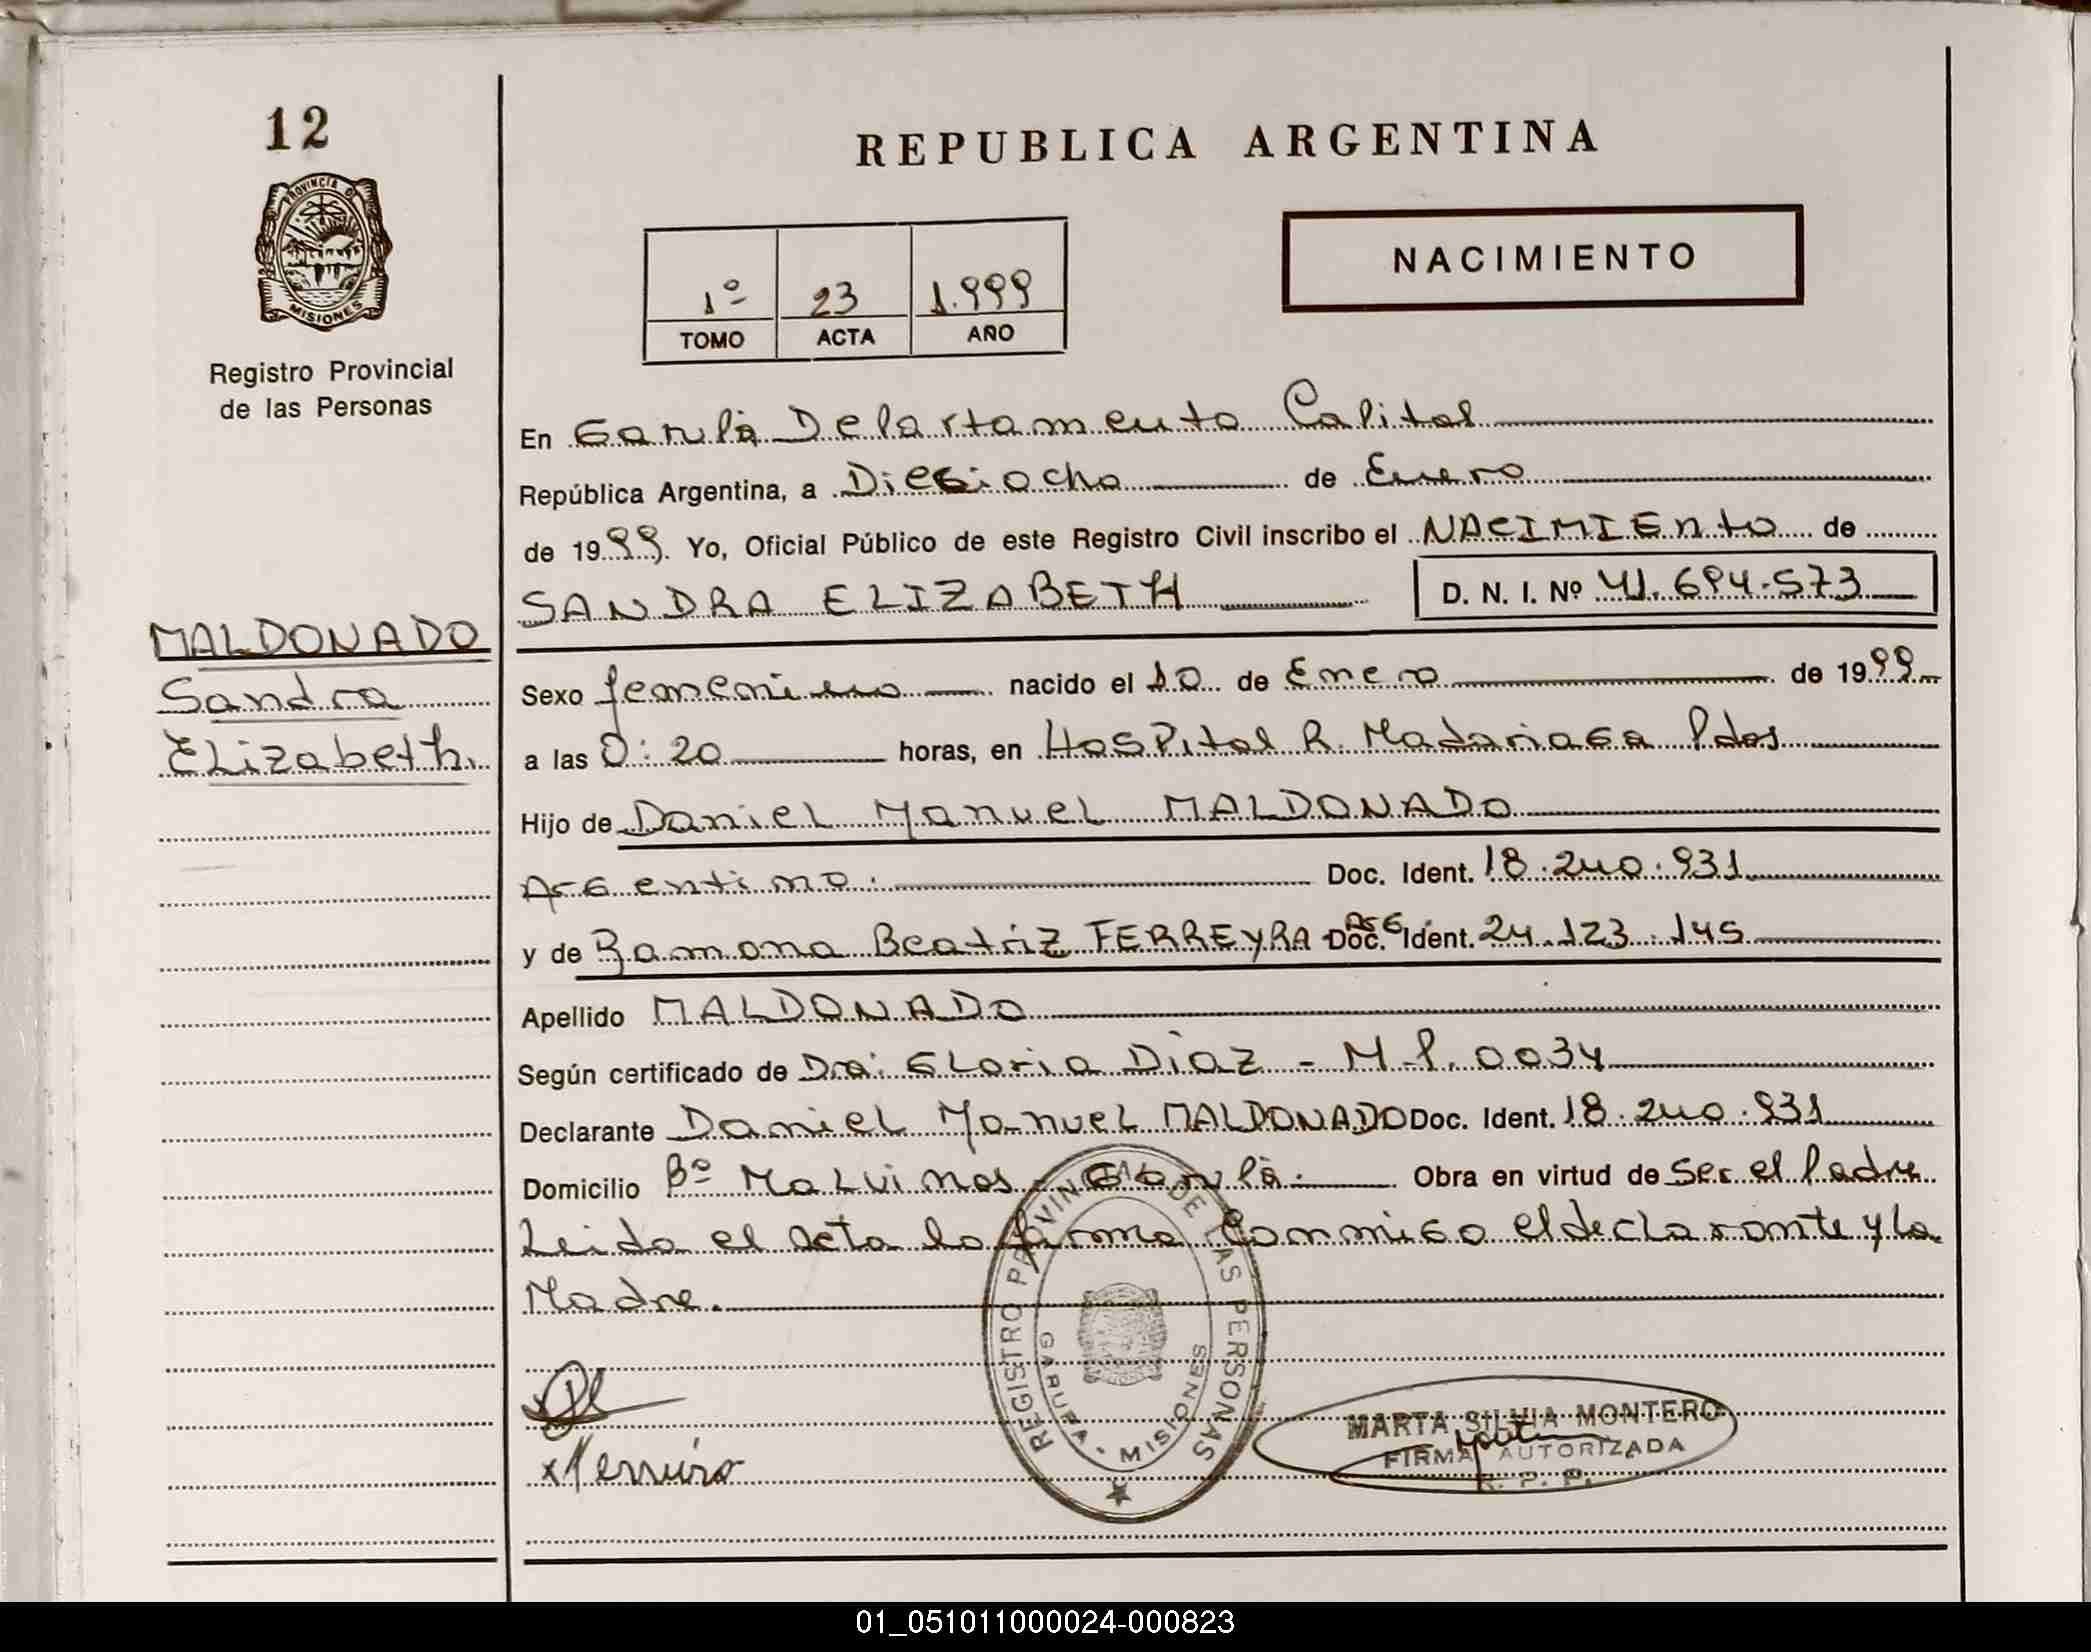 12
PROVINCIA DE
MISIONES
Registro Provincial
de las Personas
MALDONADO
Sandra
Elizabeth.
REPUBLICA ARGENTINA
1º 23 1.999
TOMO ACTA AÑO
NACIMIENTO
En Garupá Departamento Capital
República Argentina, a Dieciocho de Enero
de 1999. Yo, Oficial Público de este Registro Civil inscribo el NACIMIENTO de
SANDRA ELIZABETH D. N. I. Nº 41.694.573
Sexo femenino nacido el 10 de Enero de 1999
a las 0:20 horas, en Hospital R. Madariaga Pdas
Hijo de Daniel Manuel MALDONADO
Argentino. Doc. Ident. 18.240.931
y de Ramona Beatriz FERREYRA Arg Doc. Ident. 24.123.145
Apellido MALDONADO
Según certificado de Dra: Gloria Diaz - M.P. 0034
Declarante Daniel Manuel MALDONADO Doc. Ident. 18.240.931
Domicilio Bº Malvinas - Garupá. Obra en virtud de Ser el Padre
Leida el acta la firma conmigo el declarante y la
Madre.
REGISTRO PROVINCIAL DE LAS PERSONAS
GARUPA - MISIONES
MARTA SILVIA MONTERO
FIRMA AUTORIZADA
R. P. P.
01_051011000024-000823